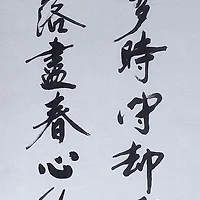 多時守却
落盡春心